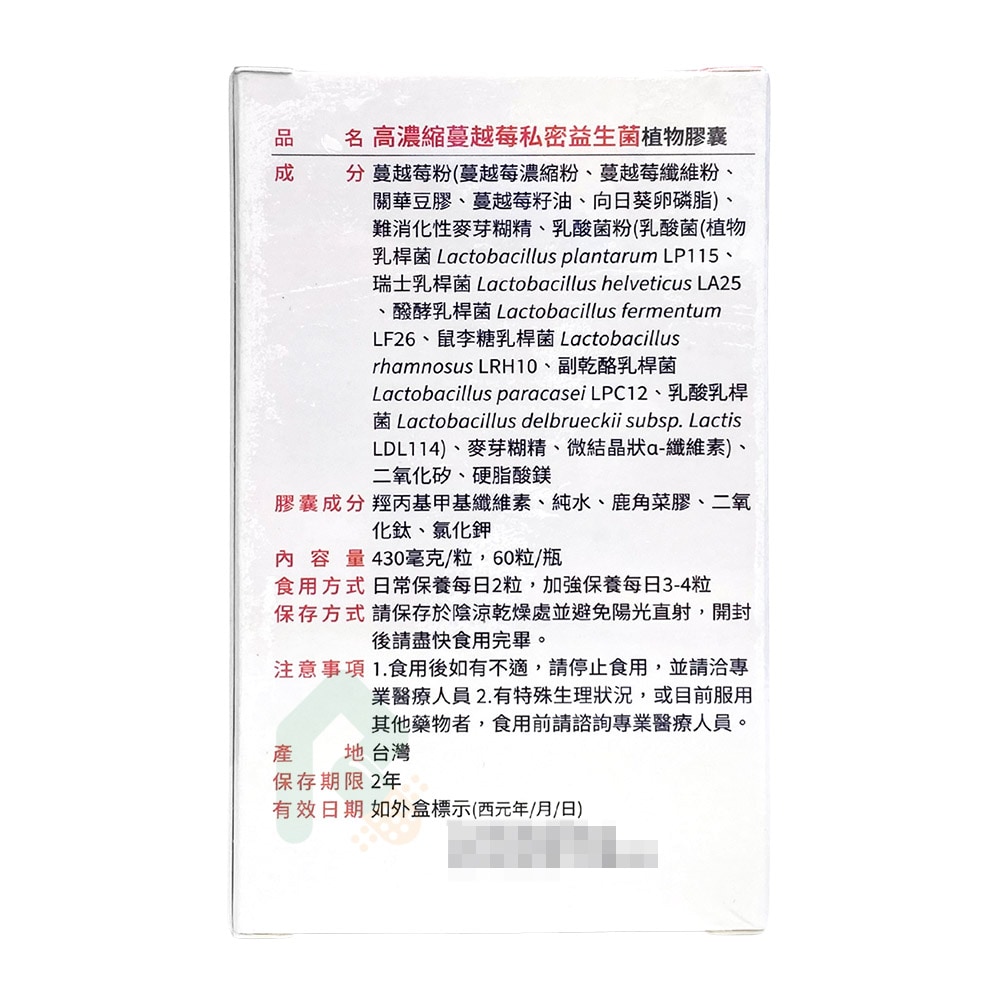 品名 高濃縮蔓越莓私密益生菌植物膠囊
成分 蔓越莓粉(蔓越莓濃縮粉、蔓越莓纖維粉、
關華豆膠、蔓越莓籽油、向日葵卵磷脂)、
難消化性麥芽糊精、乳酸菌粉(乳酸菌(植物
乳桿菌 Lactobacillus plantarum LP115、
瑞士乳桿菌 Lactobacillus helveticus LA25
、醱酵乳桿菌 Lactobacillus fermentum
LF26、鼠李糖乳桿菌 Lactobacillus
rhamnosus LRH10、副乾酪乳桿菌
Lactobacillus paracasei LPC12、乳酸乳桿
菌 Lactobacillus delbrueckii subsp. Lactis
LDL114)、麥芽糊精、微結晶狀α-纖維素)、
二氧化矽、硬脂酸鎂
膠囊成分 羥丙基甲基纖維素、純水、鹿角菜膠、二氧
化鈦、氯化鉀
內容量 430毫克/粒，60粒/瓶
食用方式 日常保養每日2粒，加強保養每日3-4粒
保存方式 請保存於陰涼乾燥處並避免陽光直射，開封
後請盡快食用完畢。
注意事項 1.食用後如有不適，請停止食用，並請洽專
業醫療人員 2.有特殊生理狀況，或目前服用
其他藥物者，食用前請諮詢專業醫療人員。
產地 台灣
保存期限 2年
有效日期 如外盒標示(西元年/月/日)